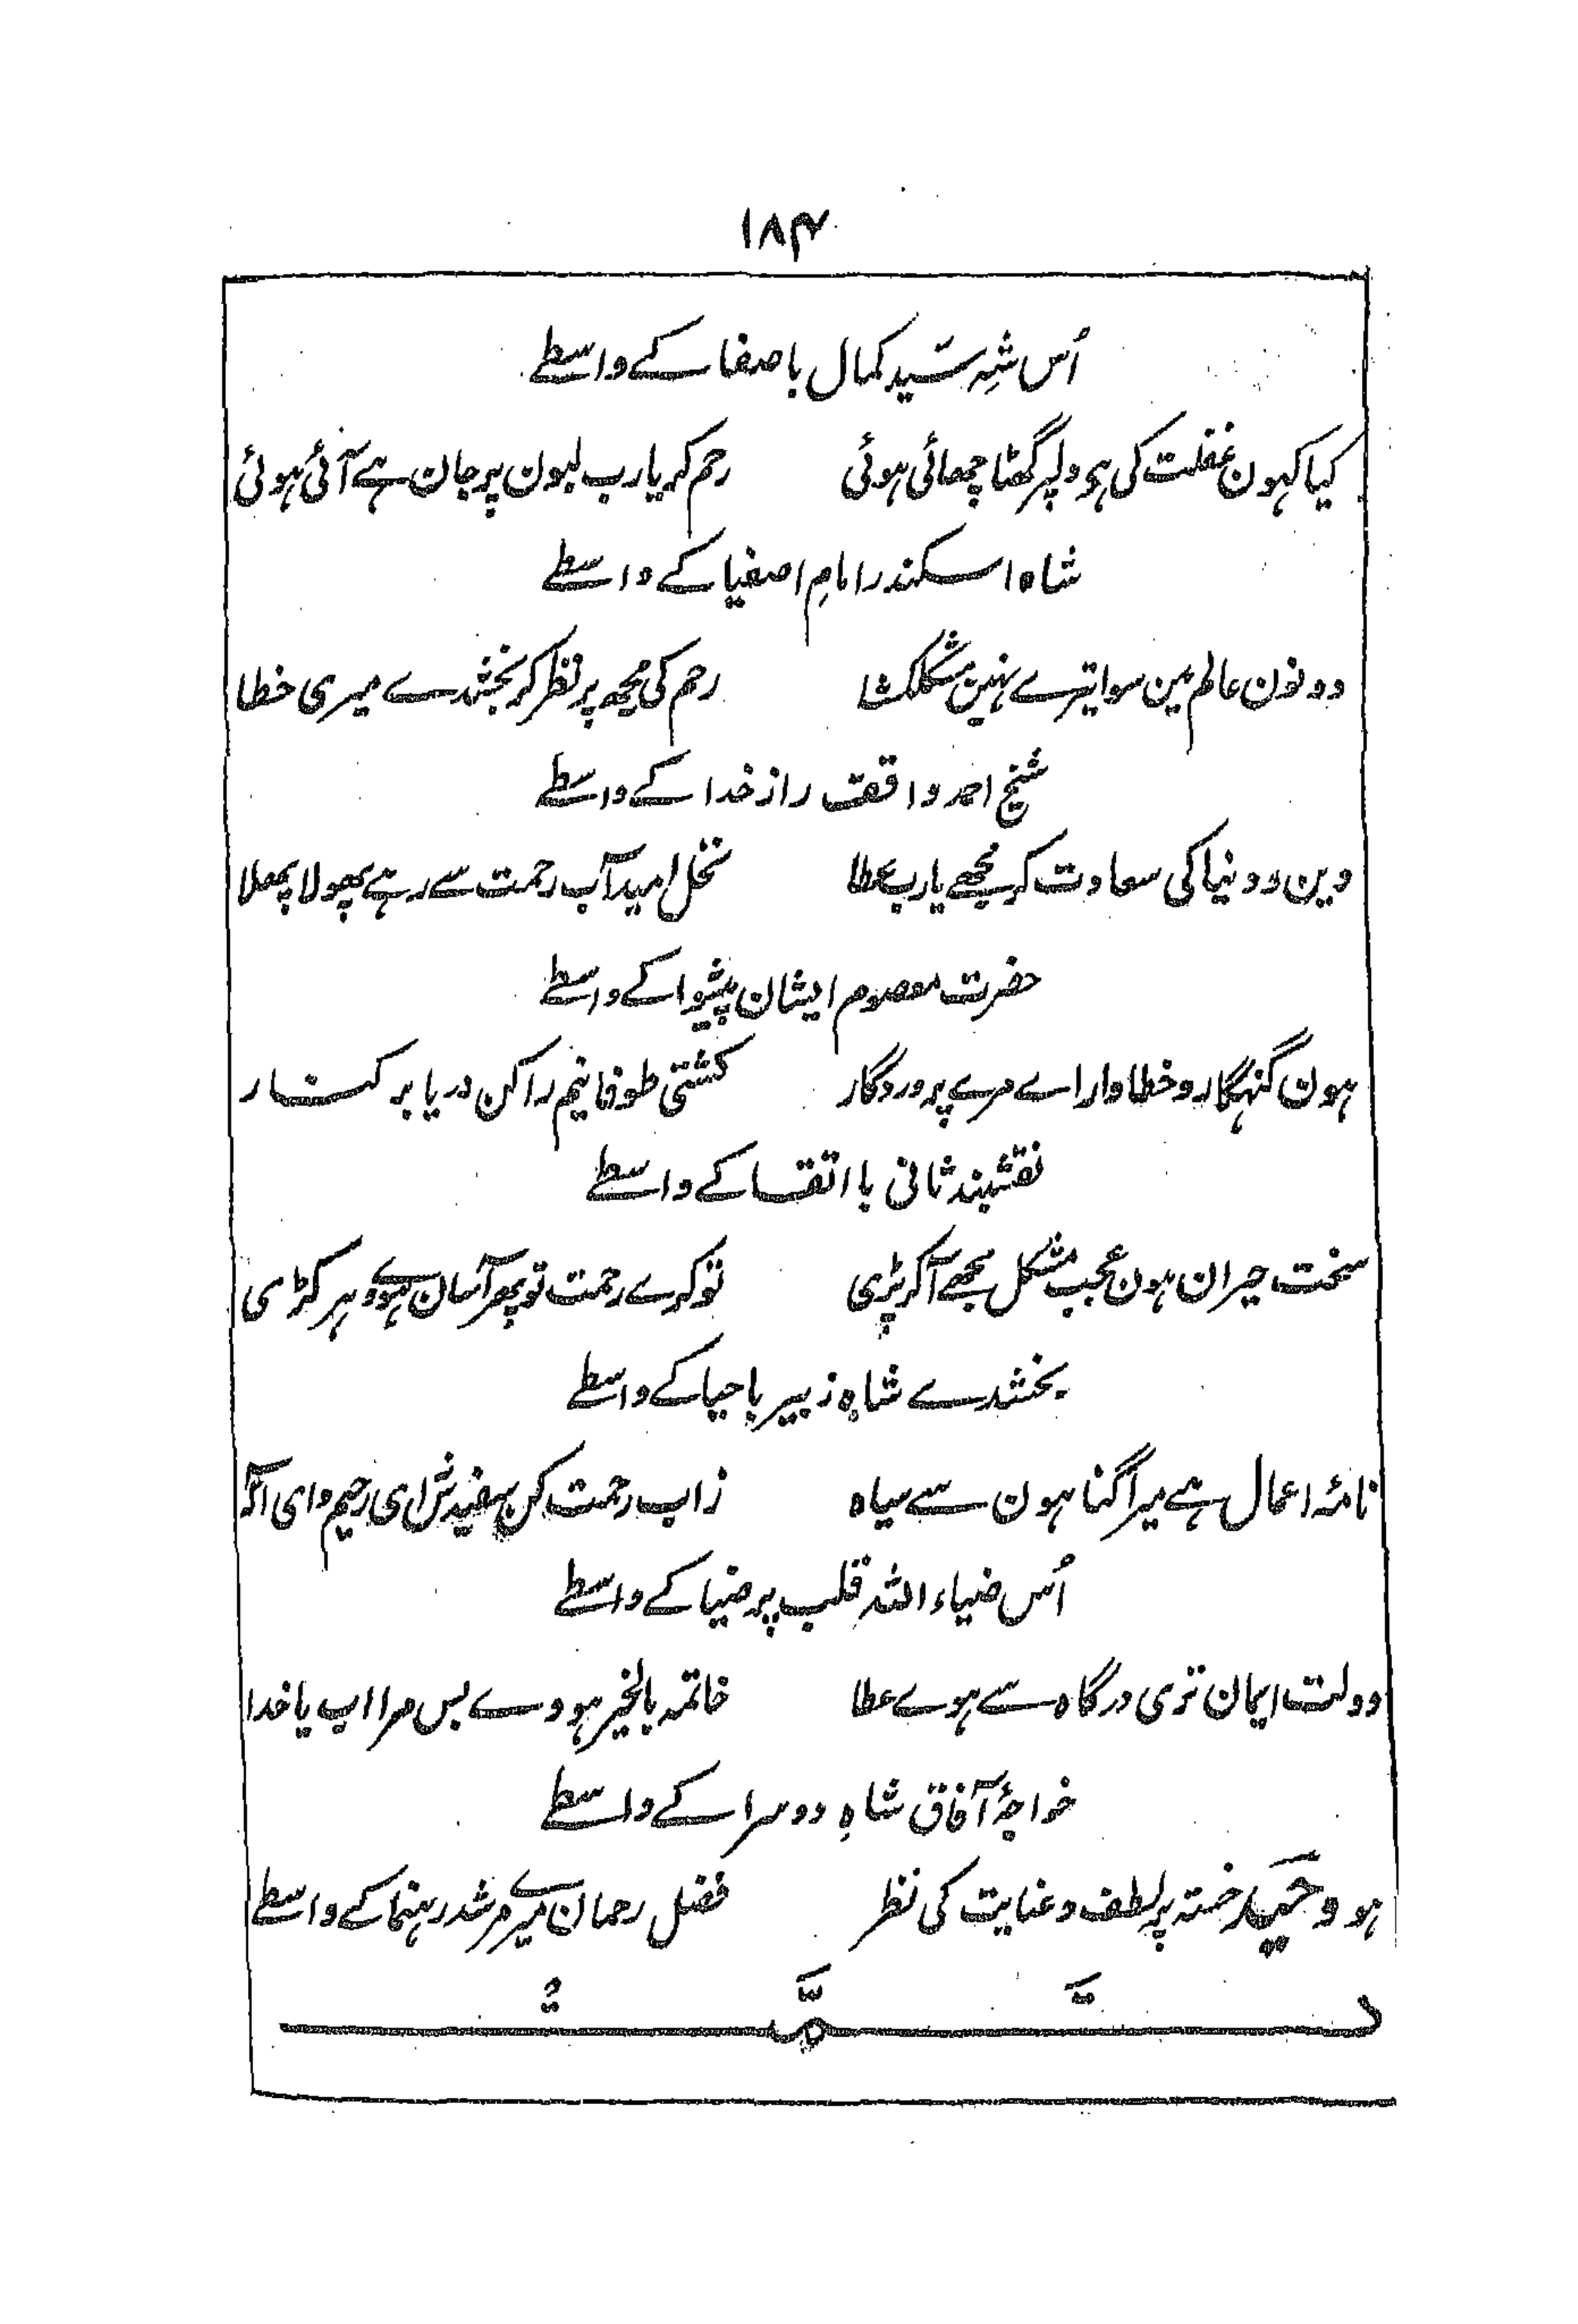 ۱۸۴
اُس شہِ سیّد کمال باصفا کے واسطے
کیا کہون غفلت کی ہی دلپر گھٹا چھائی ہوئی رحم کر یارب لبون پر جان ہے آئی ہوئی
شاہ اسکندر امامِ اصفیا کے واسطے
دونون عالم مین سوا تیرے نہین مشکلکشا رحم کی مجھ پر نظر کر بخشدے میری خطا
شیخ احمد واقف راز خدا کے واسطے
دین و دنیا کی سعادت کر مجھے یارب عطا نخل امید آب رحمت سے رہے پھولا پھلا
حضرت معصوم ایشان پیشوا کے واسطے
ہون گنہگار و خطاوار اے مرے پروردگار کشتی طوفانیم را کن دریا بر کنار
نقشبند ثانی با اتقا کے واسطے
سخت حیران ہون عجب مشکل مجھے آکر پڑی تو کرے رحمت تو پھر آسان ہووے ہر کڑی
بخشدے شاہ زبیر باحیا کے واسطے
نامۂ اعمال ہے میرا گناہون سے سیاہ زاب رحمت کن سفیدش ای رحیم و ای الٰہ
اُس ضیاء اللہ قلب پر ضیا کے واسطے
دولت ایمان تری درگاہ سے ہوے عطا خاتمہ بالخیر ہووے بس مرا اب یا خدا
خواجۂ آفاق شاہِ دوسرا کے واسطے
ہو وحید خستہ پر لطف و عنایت کی نظر فضل رحمان میرے مرشد رہنما کے واسطے
تمت